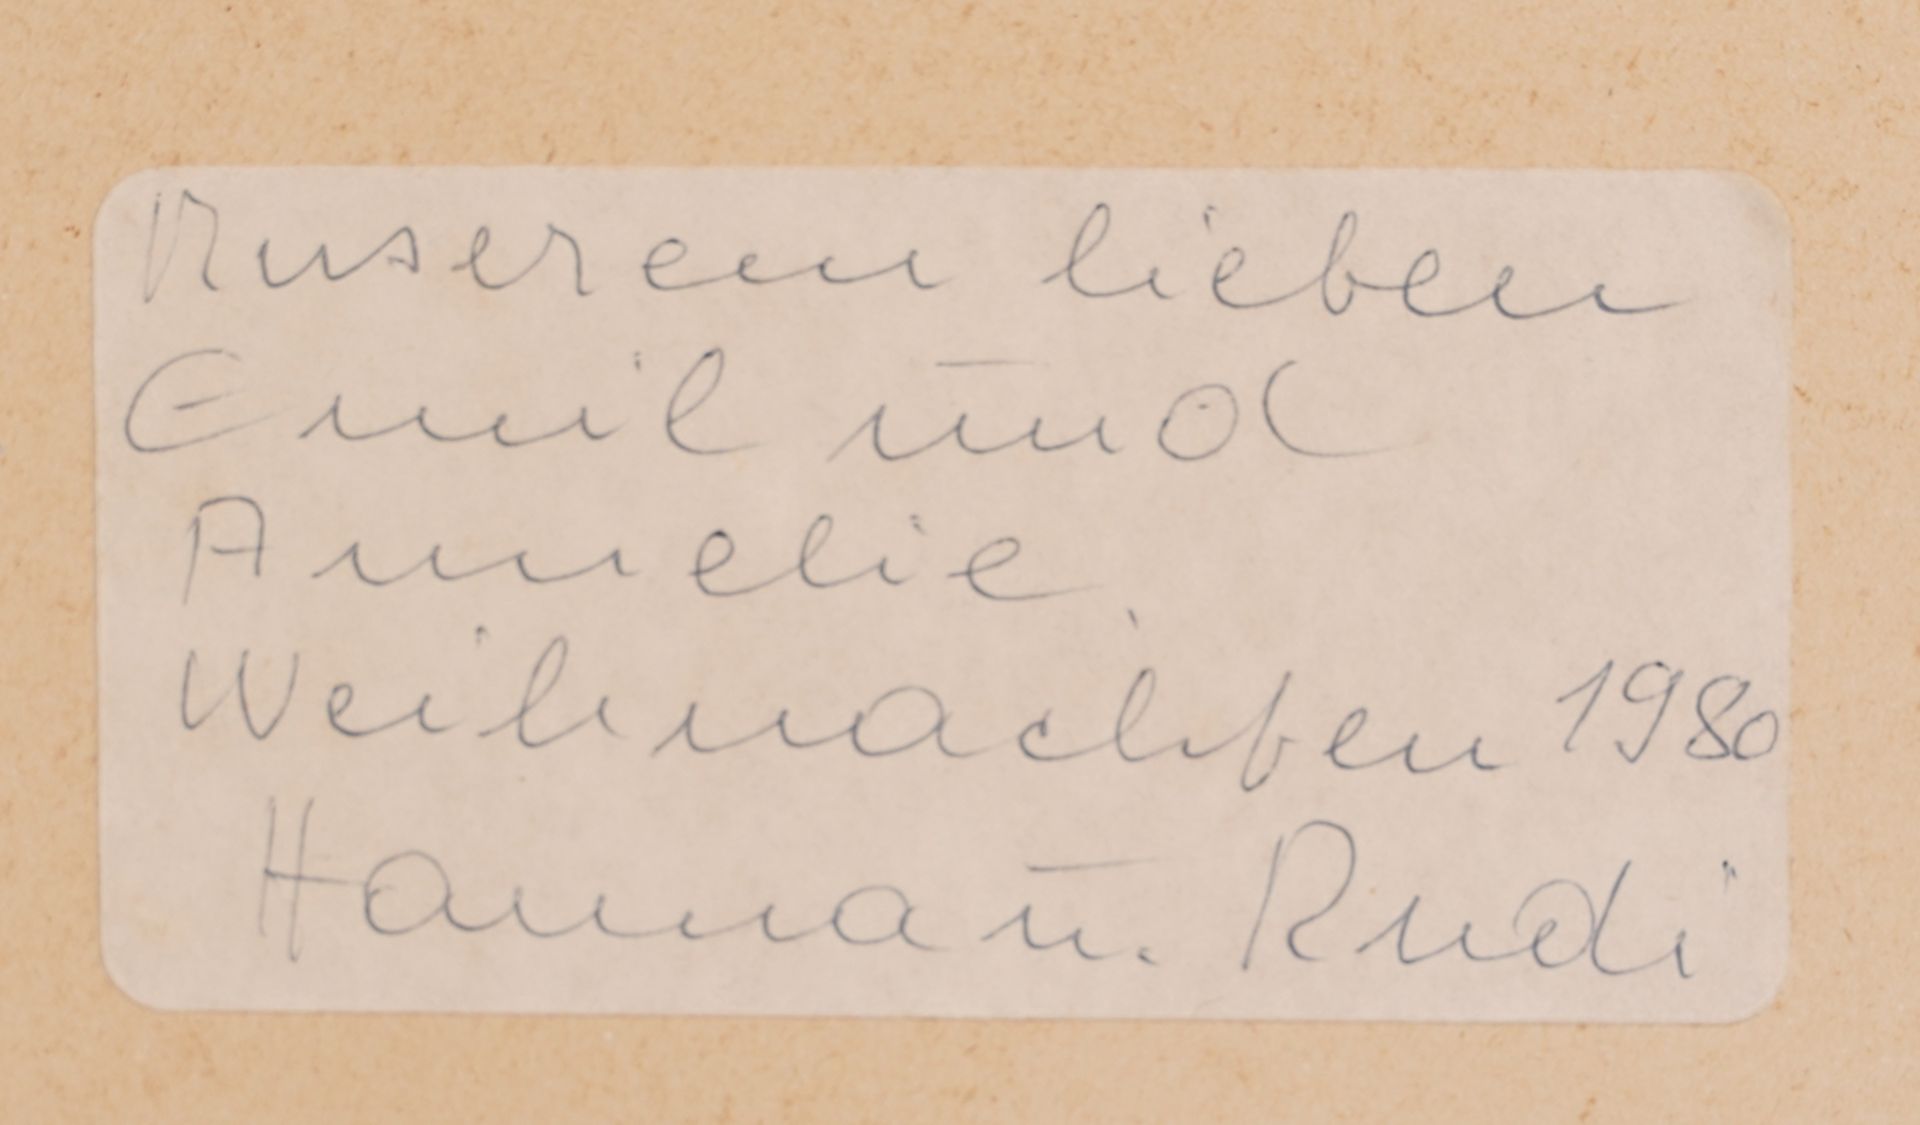 Unserem lieben
Emil und
Annelie.
Weihnachten 1980
Hanna u. Rudi